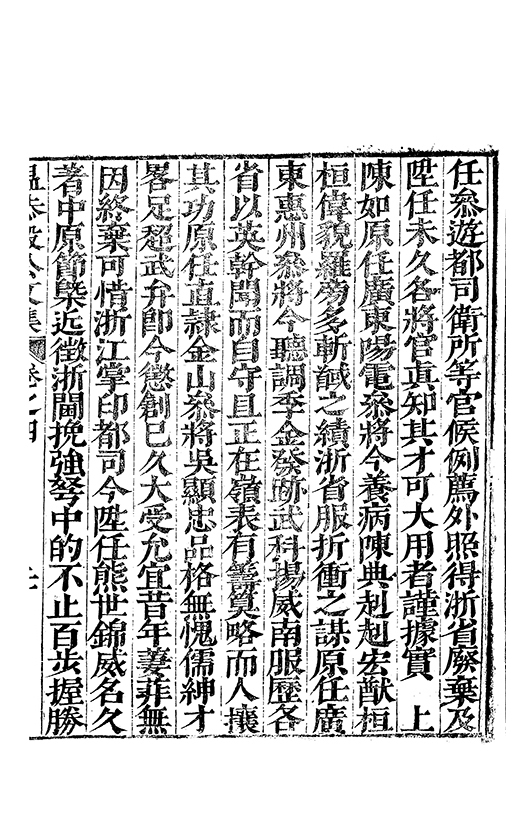 任叅遊都司衛所等官候例薦外照得浙省廢棄及
陞任未久各將官真知其才可大用者謹據實 上
陳如原任廣東陽電叅將今養病陳典赳赳宏猷桓
桓偉貌羅旁多斬馘之績浙省服折衝之謀原任廣
東惠州叅將今聽調季金發跡武科揚威南服歷各
省以英幹聞而自守且正在嶺表有籌筭略而人攘
其功原任直隷金山叅將吳顯忠品格無愧儒紳才
畧足超武弁卽今懲創已久大受允宜昔年萋菲無
因終棄可惜浙江掌印都司今陞任熊世錦威名久
著中原節槩近徵浙閫挽強弩中的不止百步握勝
溫恭毅公文集 卷之四